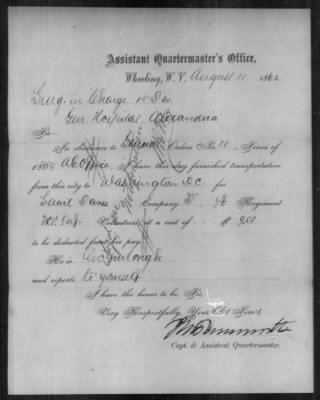 Assistant Quartermaster's Office,
Wheeling, W. V. August 11 1864
Surg. in Charge 1st Div
Gen Hospital Alexandria
Sir:
In obedience to General Orders No. 18, Series of
1864 A G Office, I have this day furnished transportation
from this city to Washington D C for
Company D. 7th Regiment
Volunteers, at a cost of $ 9.50
to be deducted from his pay.
He is on furlough
and reports to yourself
I have the honor to be, Sir,
Very Respectfully, Your Ob't Serv't,
Capt. & Assistant Quartermaster.